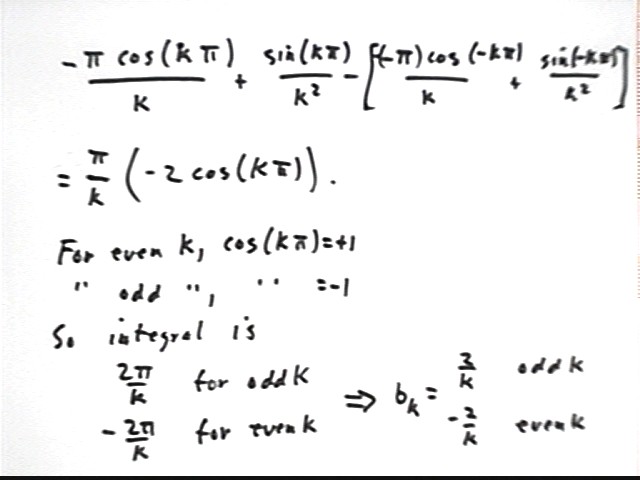 -π cos(kπ)/k + sin(kπ)/k² - [(-π)cos(-kπ)/k + sin(-kπ)/k²]
= π/k (-2 cos(kπ)).
For even k, cos(kπ)=+1
" odd ", " =-1
So integral is
2π/k for odd k ⇒ b_k = 3/k odd k
-2π/k for even k -2/k even k